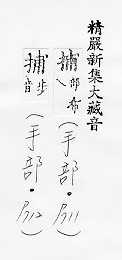 精嚴新集大藏音
捕部布（手部．P11）
捕步音（手部．P12）